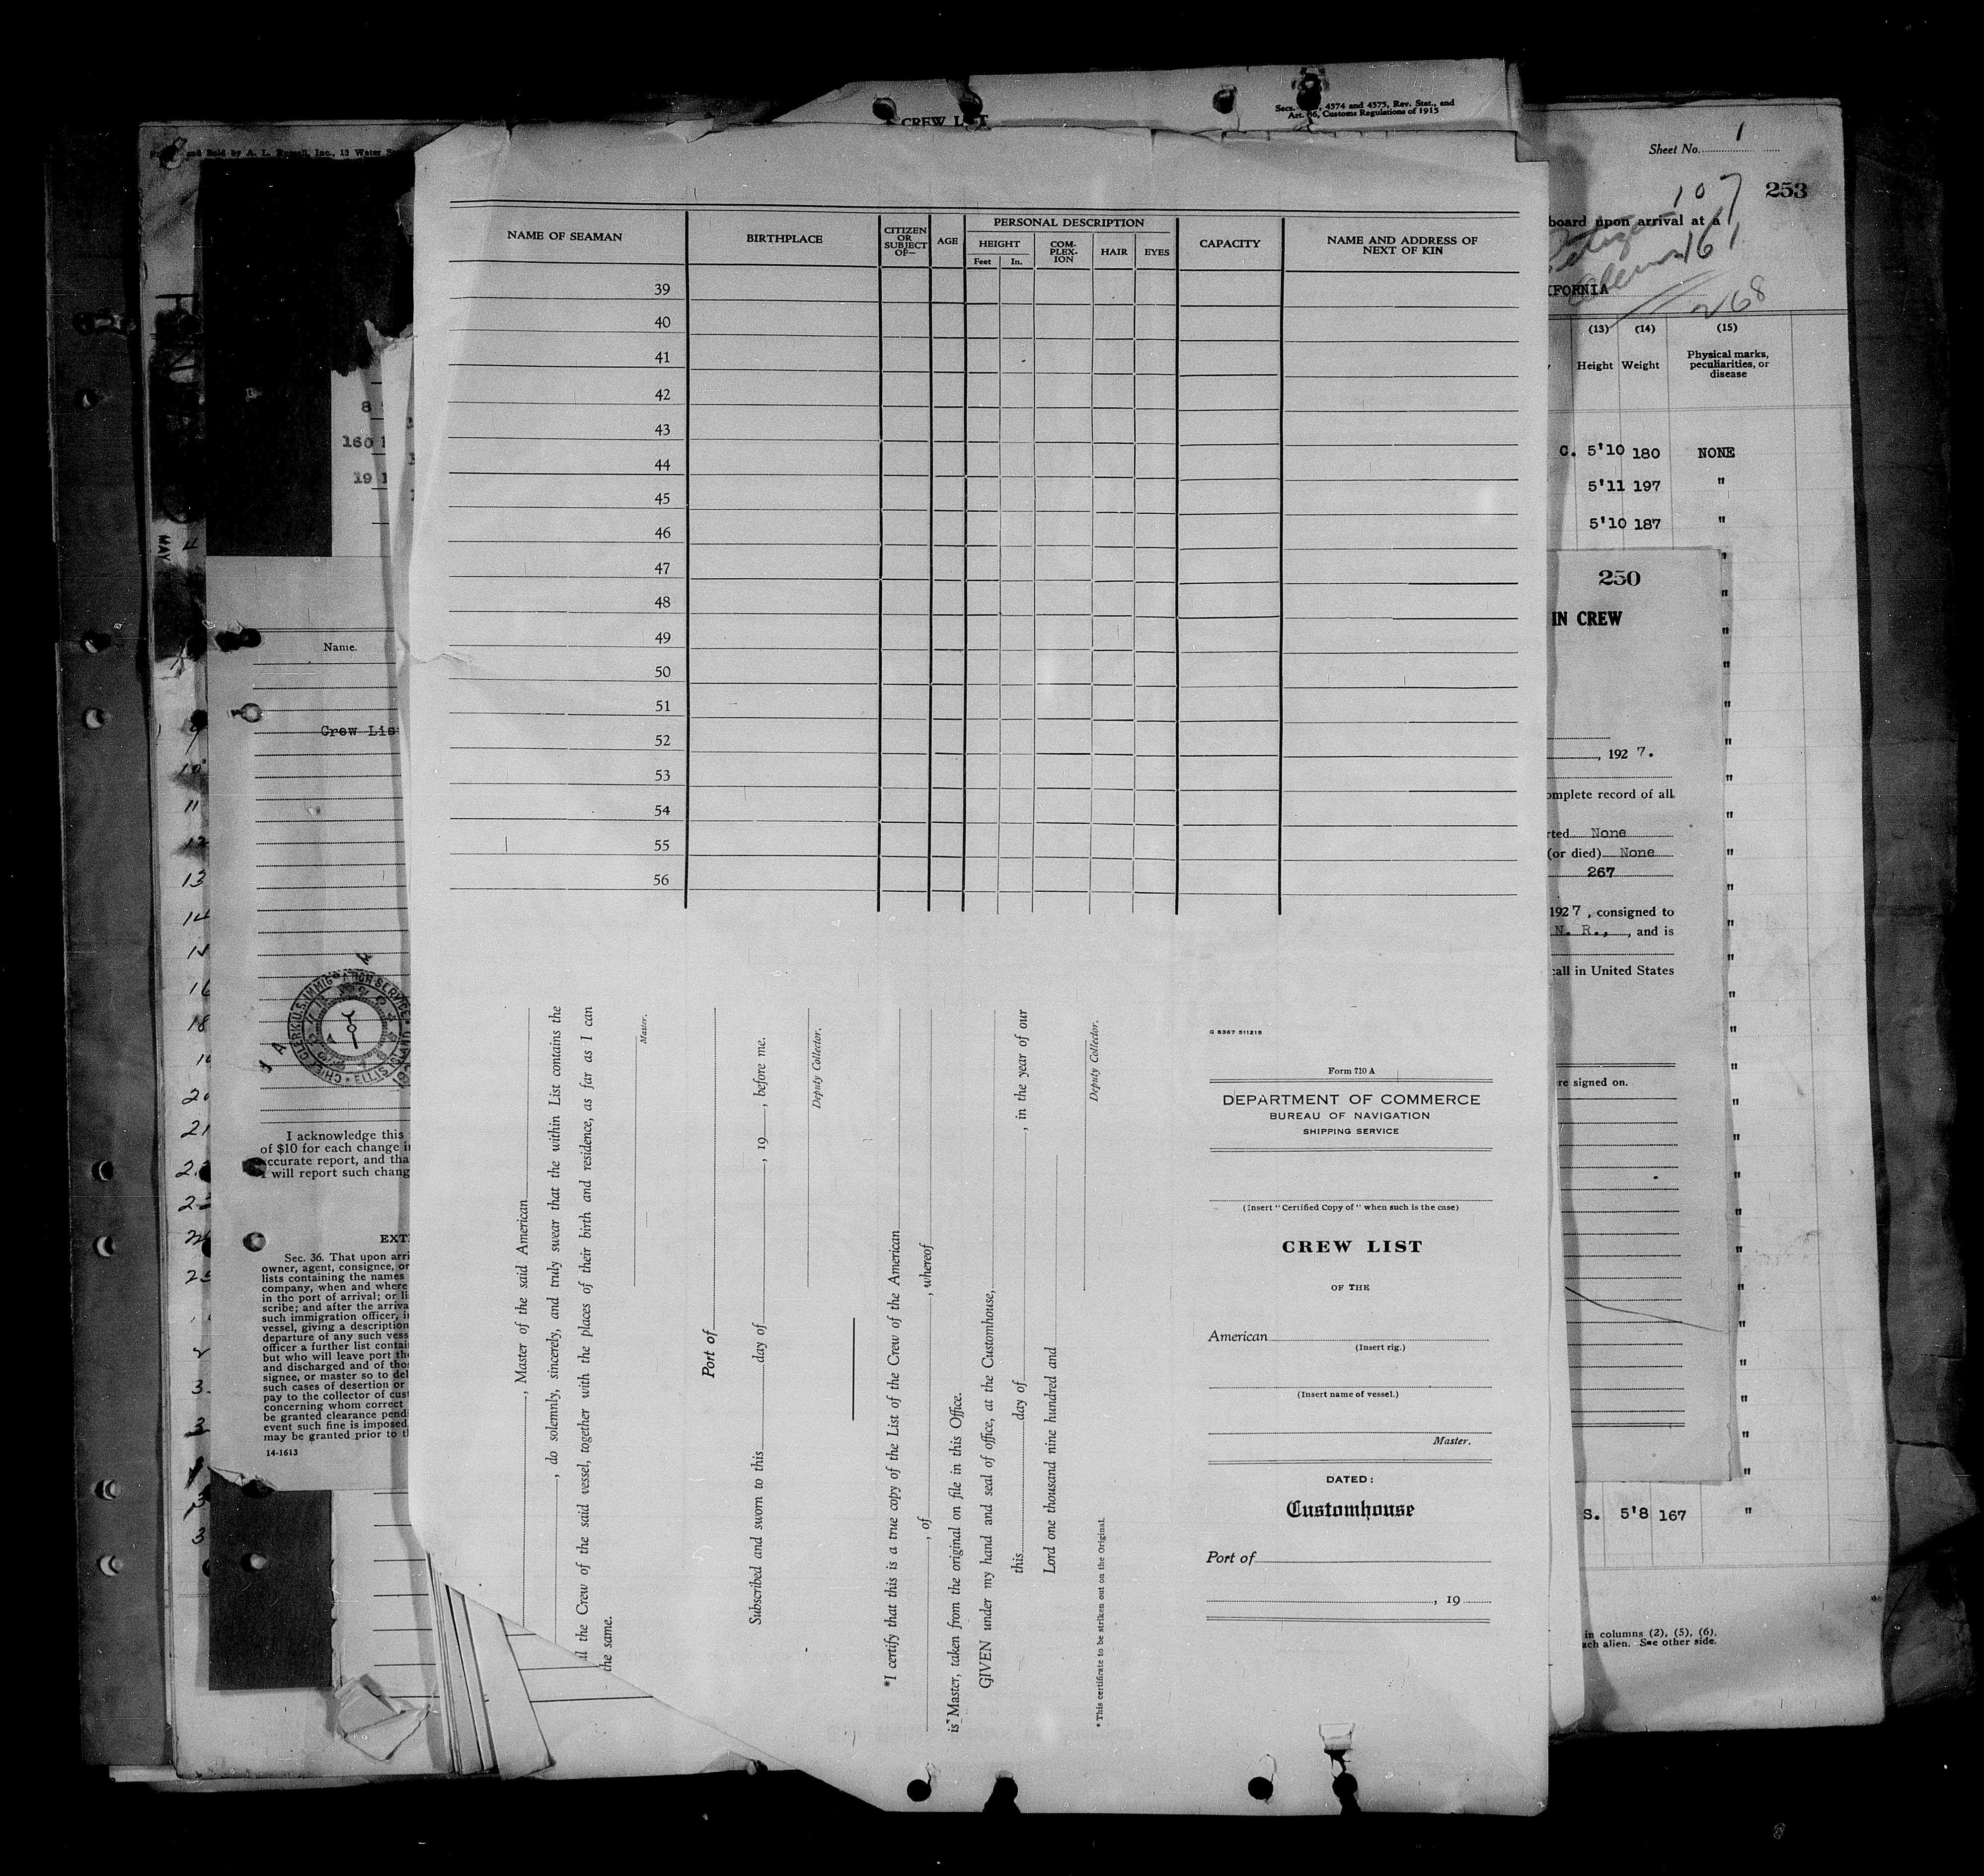 Secs. 4574 and 4575, Rev. Stat., and
Art. 86, Customs Regulations of 1915
CREW LIST
and Sold by A. L. Russell, Inc., 15 Water
Sheet No. 1
107
253
board upon arrival at a
161
IFORNIA
268
(13) (14) (15)
Height Weight Physical marks, peculiarities, or disease
C. 5'10 180 NONE
5'11 197 "
5'10 187 "
NAME OF SEAMAN BIRTHPLACE CITIZEN OR SUBJECT OF— AGE PERSONAL DESCRIPTION CAPACITY NAME AND ADDRESS OF NEXT OF KIN
HEIGHT COM-PLEX-ION HAIR EYES
Feet In.
39
40
41
42
43
44
45
46
47
48
49
50
51
52
53
54
55
56
8
160
19
MAY
4
Name.
Crew Lis
9
10
11
12
13
14
15
16
18
20
21
CHIEF CLERK U.S. IMMIGRATION SERVICE
ELLIS
I acknowledge this
of $10 for each change i
accurate report, and tha
I will report such chang
EXT
Sec. 36. That upon arri
owner, agent, consignee, or
lists containing the names
company, when and where
in the port of arrival; or li
scribe; and after the arriva
such immigration officer, i
vessel, giving a description
departure of any such vess
officer a further list contai
but who will leave port th
and discharged and of tho
signee, or master so to del
such cases of desertion or
pay to the collector of cust
concerning whom correct
be granted clearance pendi
event such fine is imposed
may be granted prior to t
14-1613
, Master of the said American
, do solemnly, sincerely, and truly swear that the within List contains the
the Crew of the said vessel, together with the places of their birth and residence, as far as I can
the same.
Master.
Port of
Subscribed and sworn to this day of , 19 , before me.
Deputy Collector.
*I certify that this is a true copy of the List of the Crew of the American
, of , whereof
is Master, taken from the original on file in this Office.
GIVEN under my hand and seal of office, at the Customhouse,
this day of , in the year of our
Lord one thousand nine hundred and
Deputy Collector.
*This certificate to be striken out on the Original.
G 8367 511215
Form 710 A
DEPARTMENT OF COMMERCE
BUREAU OF NAVIGATION
SHIPPING SERVICE
(Insert "Certified Copy of" when such is the case)
CREW LIST
OF THE
American
(Insert rig.)
(Insert name of vessel.)
Master.
DATED:
Customhouse
Port of
, 19
250
IN CREW
, 192 7.
omplete record of all
rted None
(or died) None
267
1927, consigned to
N. R., , and is
call in United States
re signed on.
S. 5'8 167 "
in columns (2), (5), (6),
ach alien. See other side.